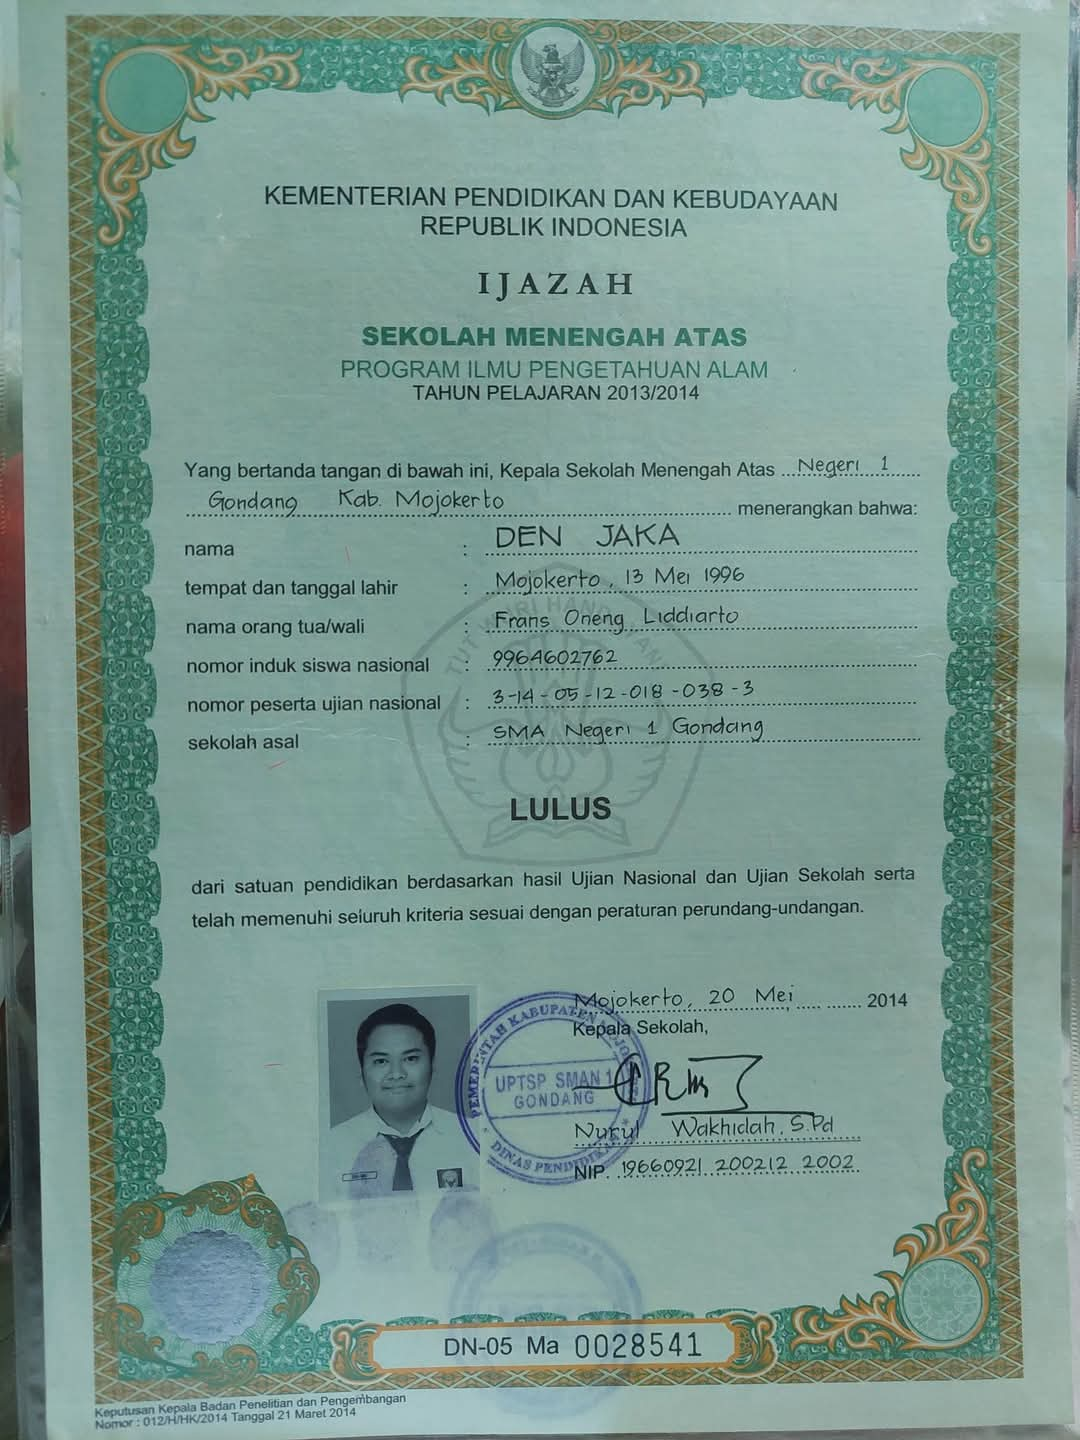 KEMENTERIAN PENDIDIKAN DAN KEBUDAYAAN
REPUBLIK INDONESIA
IJAZAH
SEKOLAH MENENGAH ATAS
PROGRAM ILMU PENGETAHUAN ALAM
TAHUN PELAJARAN 2013/2014
Yang bertanda tangan di bawah ini, Kepala Sekolah Menengah Atas Negeri 1
Gondang Kab. Mojokerto menerangkan bahwa:
nama : DEN JAKA
tempat dan tanggal lahir : Mojokerto, 13 Mei 1996
nama orang tua/wali : Frans Oneng Liddiarto
nomor induk siswa nasional : 9964602762
nomor peserta ujian nasional : 3-14-05-12-018-038-3
sekolah asal : SMA Negeri 1 Gondang
TUT WURI HANDAYANI
LULUS
dari satuan pendidikan berdasarkan hasil Ujian Nasional dan Ujian Sekolah serta
telah memenuhi seluruh kriteria sesuai dengan peraturan perundang-undangan.
Mojokerto, 20 Mei 2014
Kepala Sekolah,
PEMERINTAH KABUPATEN MOJOKERTO
UPTSP SMAN 1
GONDANG
DINAS PENDIDIKAN
Nurul Wakhidah, S.Pd
NIP. 19660921 200212 2002
DN-05 Ma 0028541
Keputusan Kepala Badan Penelitian dan Pengembangan
Nomor : 012/H/HK/2014 Tanggal 21 Maret 2014